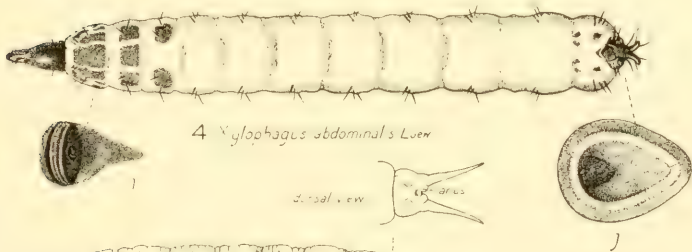 4 Xylophagus abdominalis Loew
1
dorsal view
anus